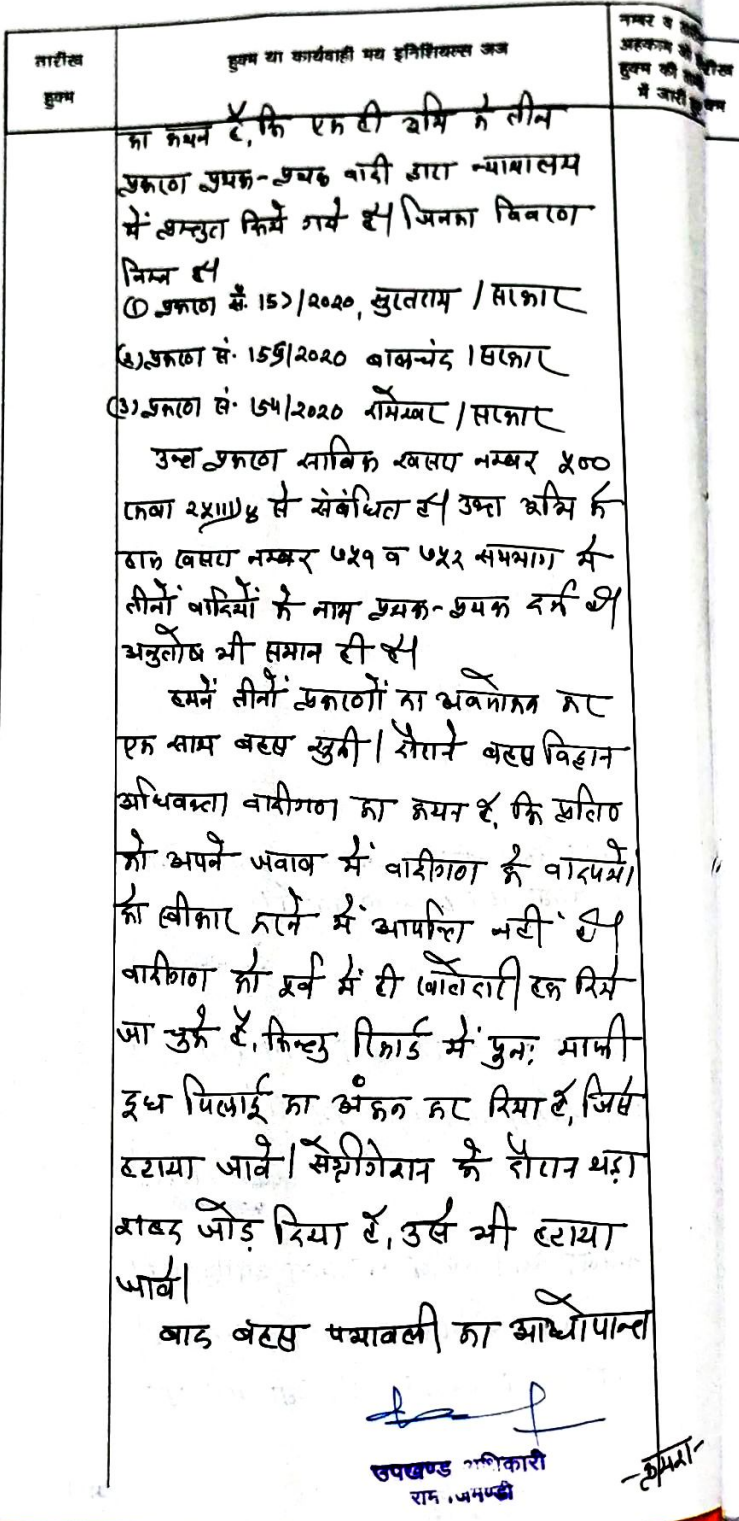 तारीख
हुक्म
हुक्म या कार्यवाही मय इनिशियल्स जज
नम्बर व
अहकाम
हुक्म की तारीख
में जारी हुक्म
का कथन है, कि एक ही भूमि के तीन
प्रकरण पृथक-पृथक वादी द्वारा न्यायालय
में प्रस्तुत किये गये है। जिनका विवरण
निम्न है।
(1) प्रकरण सं. 157/2020, सुरतराम / सरकार
(2) प्रकरण सं. 155/2020 बालचंद / सरकार
(3) प्रकरण सं. 154/2020 रामेश्वर / सरकार
उक्त प्रकरण साबिक खसरा नम्बर ५००
रकबा से संबंधित है। उक्त भूमि के
हाल खसरा नम्बर ७५१ व ७५२ समभाग में
तीनों वादियों के नाम पृथक-पृथक दर्ज है।
अनुतोष भी समान ही है।
हमनें तीनों प्रकरणों का अवलोकन कर
एक साथ बहस सुनी। दौराने बहस विद्वान
अधिवक्ता वादीगण का कथन है, कि प्रति०
को अपने जवाब में वादीगण के वादपत्रों
को स्वीकार करने में आपत्ति नहीं है।
वादीगण को पूर्व में ही खातेदारी हक दिये
जा चुके है, किन्तु रिकार्ड में पुनः माफी
दूध पिलाई का अंकन कर दिया है, जिसे
हटाया जावे। सेग्रीगेशन के दौरान थड़ा
शब्द जोड़ दिया है, उसे भी हटाया
जावे।
बाद बहस पत्रावली का आद्योपान्त
उपखण्ड अधिकारी
रामगंजमण्डी
-क्रमशः-